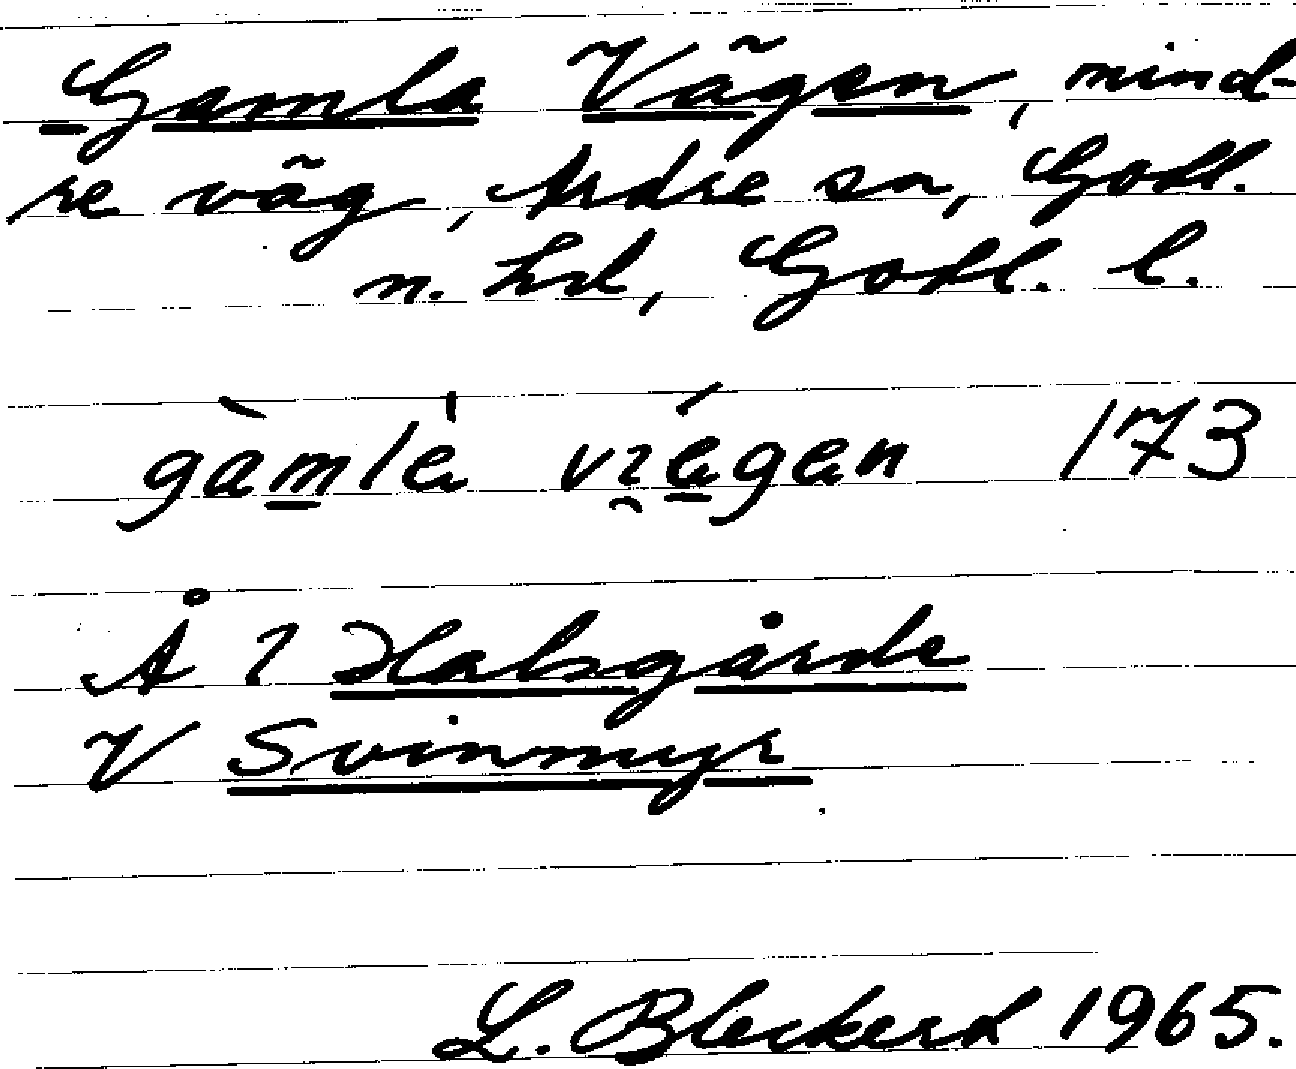 Gamla Vägen, mind-
re väg, Ardre sn, Gotl.
n. hd, Gotl. l.
gàmlè vi̯ä́gän 173
Å 1 Halsgårde
V Svinmyr
L. Bleckert 1965.